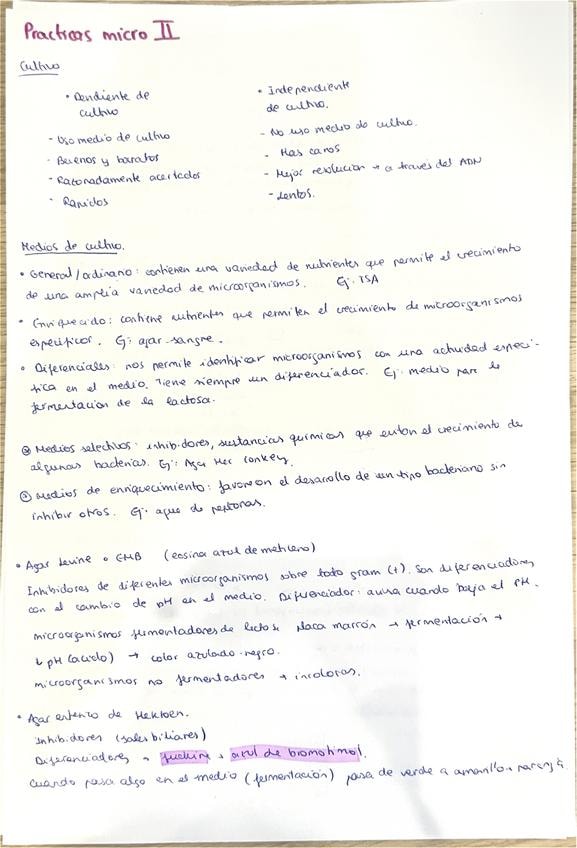 Practicas micro II
Cultivo
• Dendiente de cultivo
- Uso medio de cultivo
- Buenos y baratos
- Razonadamente acertados
• Rapidos
• Independiente de cultivo.
- No uso medio de cultivo.
- Mas caros
- Mejor resolucion → a través del ADN
- Lentos.
Medios de cultivo.
• General / ordinario: contienen una variedad de nutrientes que permite el crecimiento
de una amplia variedad de microorganismos. Ej: TSA
• Enriquecido: contiene nutrientes que permiten el crecimiento de microorganismos
especificos. Ej: agar sangre.
• Diferenciales: nos permite identificar microorganismos con una actividad especi-
fica en el medio. Tiene siempre un diferenciador. Ej: medio para la
fermentacion de la lactosa.
Medios selectivos: inhibidores, sustancias quimicas que evitan el crecimiento de
algunas bacterias. Ej: Agar Mac Conkey.
Medios de enriquecimiento: favorecen el desarollo de un tipo bacteriano sin
inhibir otros. Ej: agua de peptonas.
• Agar Levine o EMB (eosina azul de metileno)
Inhibidores de diferentes microorganismos sobre todo gram (+). Son diferenciadores
con el cambio de pH en el medio. Diferenciador: cuando baja el PH.
microorganismos fermentadores de lactosa placa marrón → fermentación →
↓ pH (acido) → color azulado-negro.
microorganismos no fermentadores → incoloras.
• Agar enterico de Hektoen.
Inhibidores (sales biliares)
Diferenciadores → fuchina + azul de bromotimol.
Cuando pasa algo en el medio (fermentación) pasa de verde a amarillo-naranja